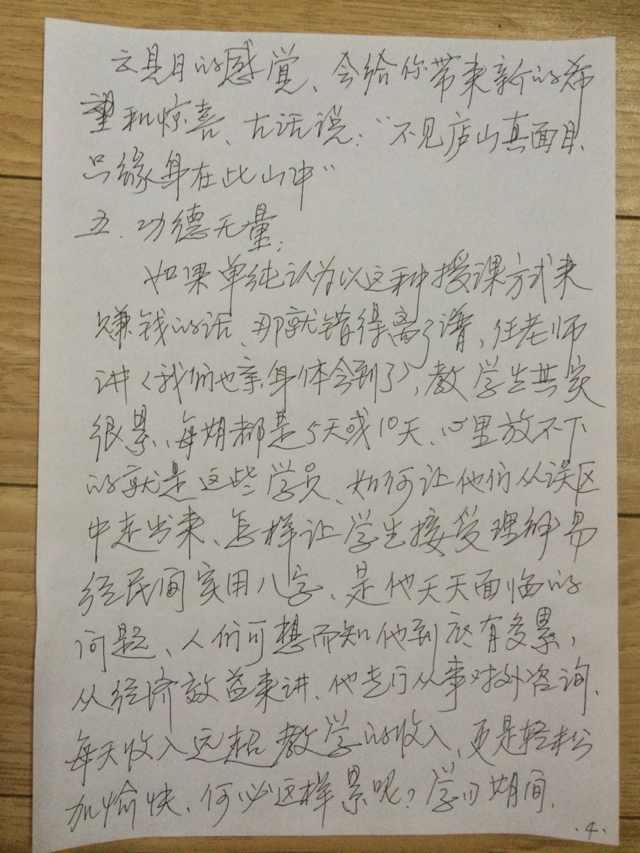 云见日的感觉、会给你带来新的希
望和惊喜、古话说:“不见庐山真面目
只缘身在此山中”
五.功德无量;
如果单纯认为以这种授课方式来
赚钱的话、那就错得离了谱,任老师
讲(我们也亲身体会到了),教学生其实
很累、每期都是5天或10天、心里放不下
的就是这些学员、如何让他们从误区
中走出来、怎样让学生接受理解易
经民间实用八字、是他天天面临的
问题、人们可想而知他到底有多累,
从经济效益来讲、他专门从事对外咨询、
每天收入远超教学的收入、更是轻松
加愉快、何必这样累呢?学习期间、
.4.